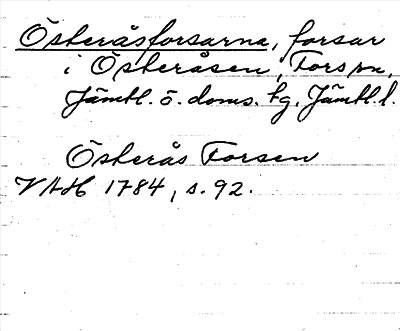 Österåsforsarna, forsar
i Österåsen, Fors sn,
Jämtl. ö. doms. tg, Jämtl. l.
Österås Forsen
VAH 1784, s. 92.